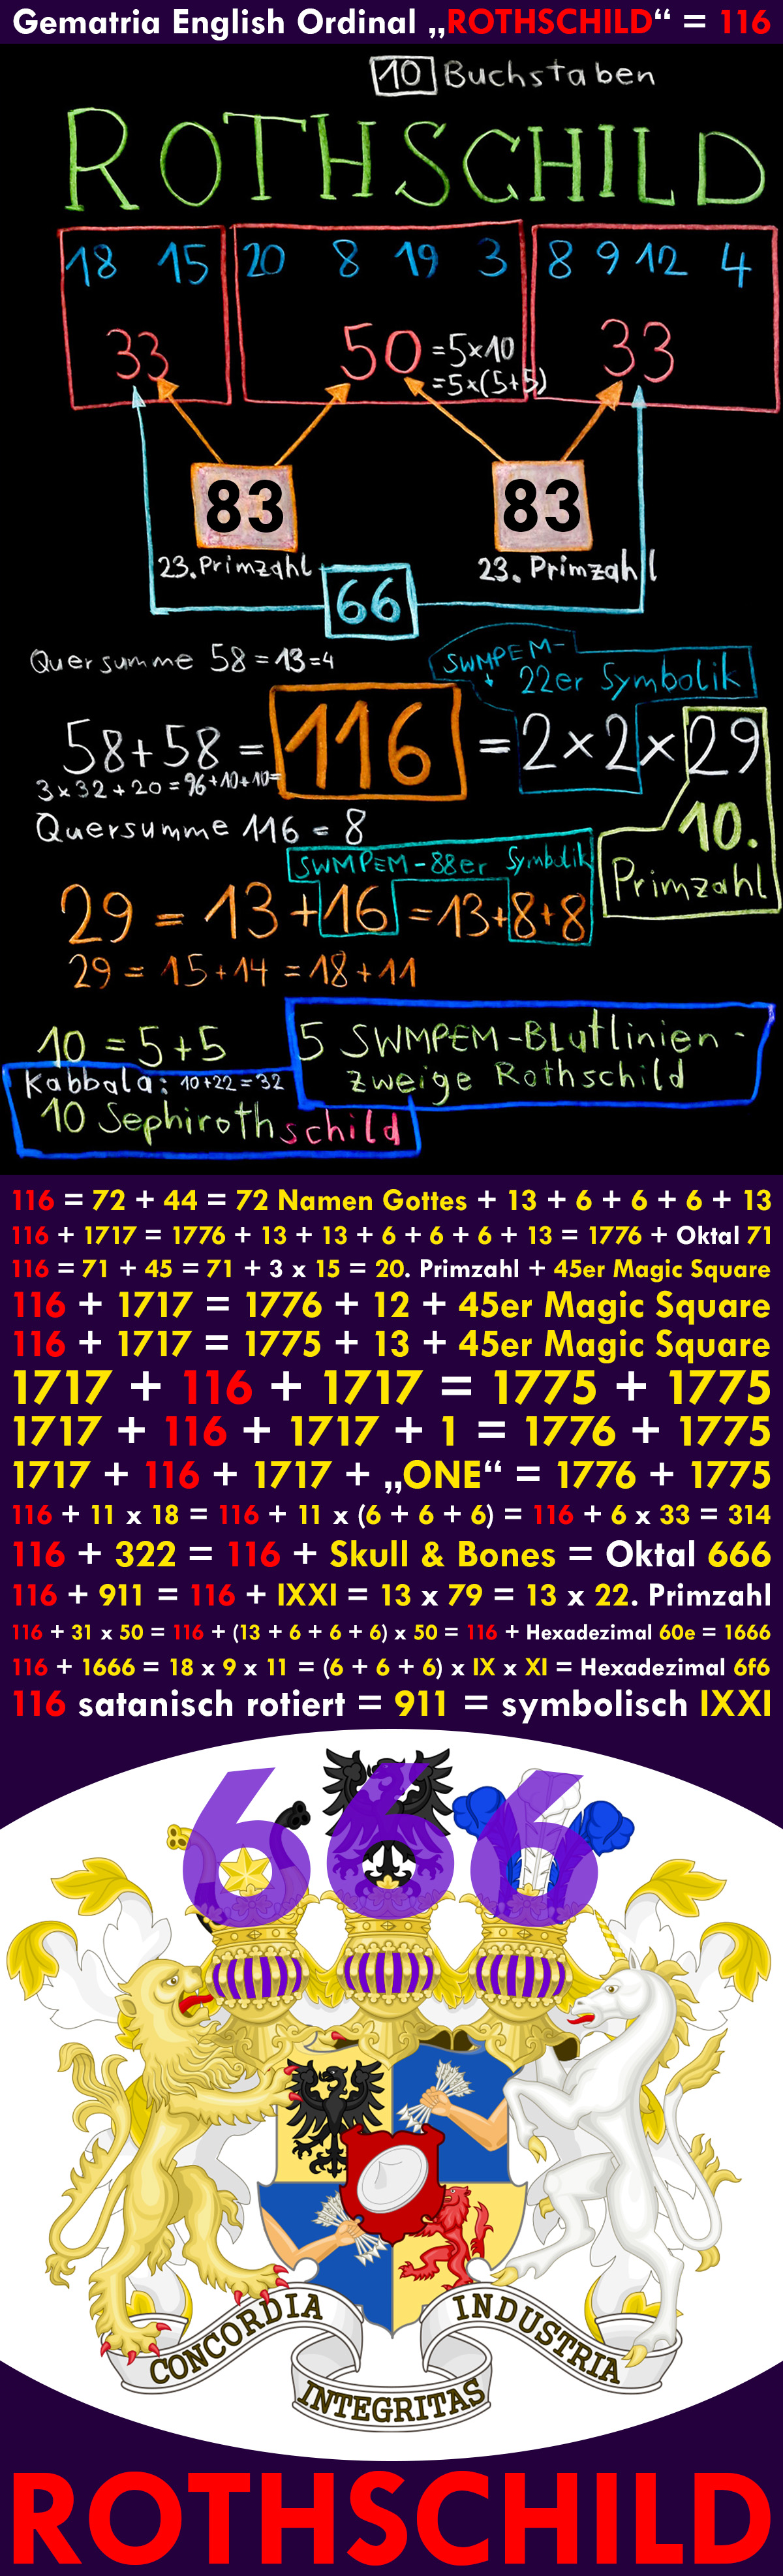 Gematria English Ordinal „ROTHSCHILD“ = 116
10 Buchstaben
ROTHSCHILD
18 15 20 8 19 3 8 9 12 4
33 50 =5x10 33
=5x(5+5)
83 83
23. Primzahl 23. Primzahl
66
Quersumme 58 = 13 = 4
SWMPEM-
22er Symbolik
58+58 = 116 = 2x2x29
3x32+20 = 96+10+10=
10.
Primzahl
Quersumme 116 = 8
SWMPEM-88er Symbolik
29 = 13+16 = 13+8+8
29 = 15+14 = 18+11
10 = 5+5
5 SWMPEM-Blutlinien-
zweige Rothschild
Kabbala: 10+22=32
10 Sephirothschild
116 = 72 + 44 = 72 Namen Gottes + 13 + 6 + 6 + 6 + 13
116 + 1717 = 1776 + 13 + 13 + 6 + 6 + 6 + 13 = 1776 + Oktal 71
116 = 71 + 45 = 71 + 3 x 15 = 20. Primzahl + 45er Magic Square
116 + 1717 = 1776 + 12 + 45er Magic Square
116 + 1717 = 1775 + 13 + 45er Magic Square
1717 + 116 + 1717 = 1775 + 1775
1717 + 116 + 1717 + 1 = 1776 + 1775
1717 + 116 + 1717 + „ONE“ = 1776 + 1775
116 + 11 x 18 = 116 + 11 x (6 + 6 + 6) = 116 + 6 x 33 = 314
116 + 322 = 116 + Skull & Bones = Oktal 666
116 + 911 = 116 + IXXI = 13 x 79 = 13 x 22. Primzahl
116 + 31 x 50 = 116 + (13 + 6 + 6 + 6) x 50 = 116 + Hexadezimal 60e = 1666
116 + 1666 = 18 x 9 x 11 = (6 + 6 + 6) x IX x XI = Hexadezimal 6f6
116 satanisch rotiert = 911 = symbolisch IXXI
666
CONCORDIA
INTEGRITAS
INDUSTRIA
ROTHSCHILD